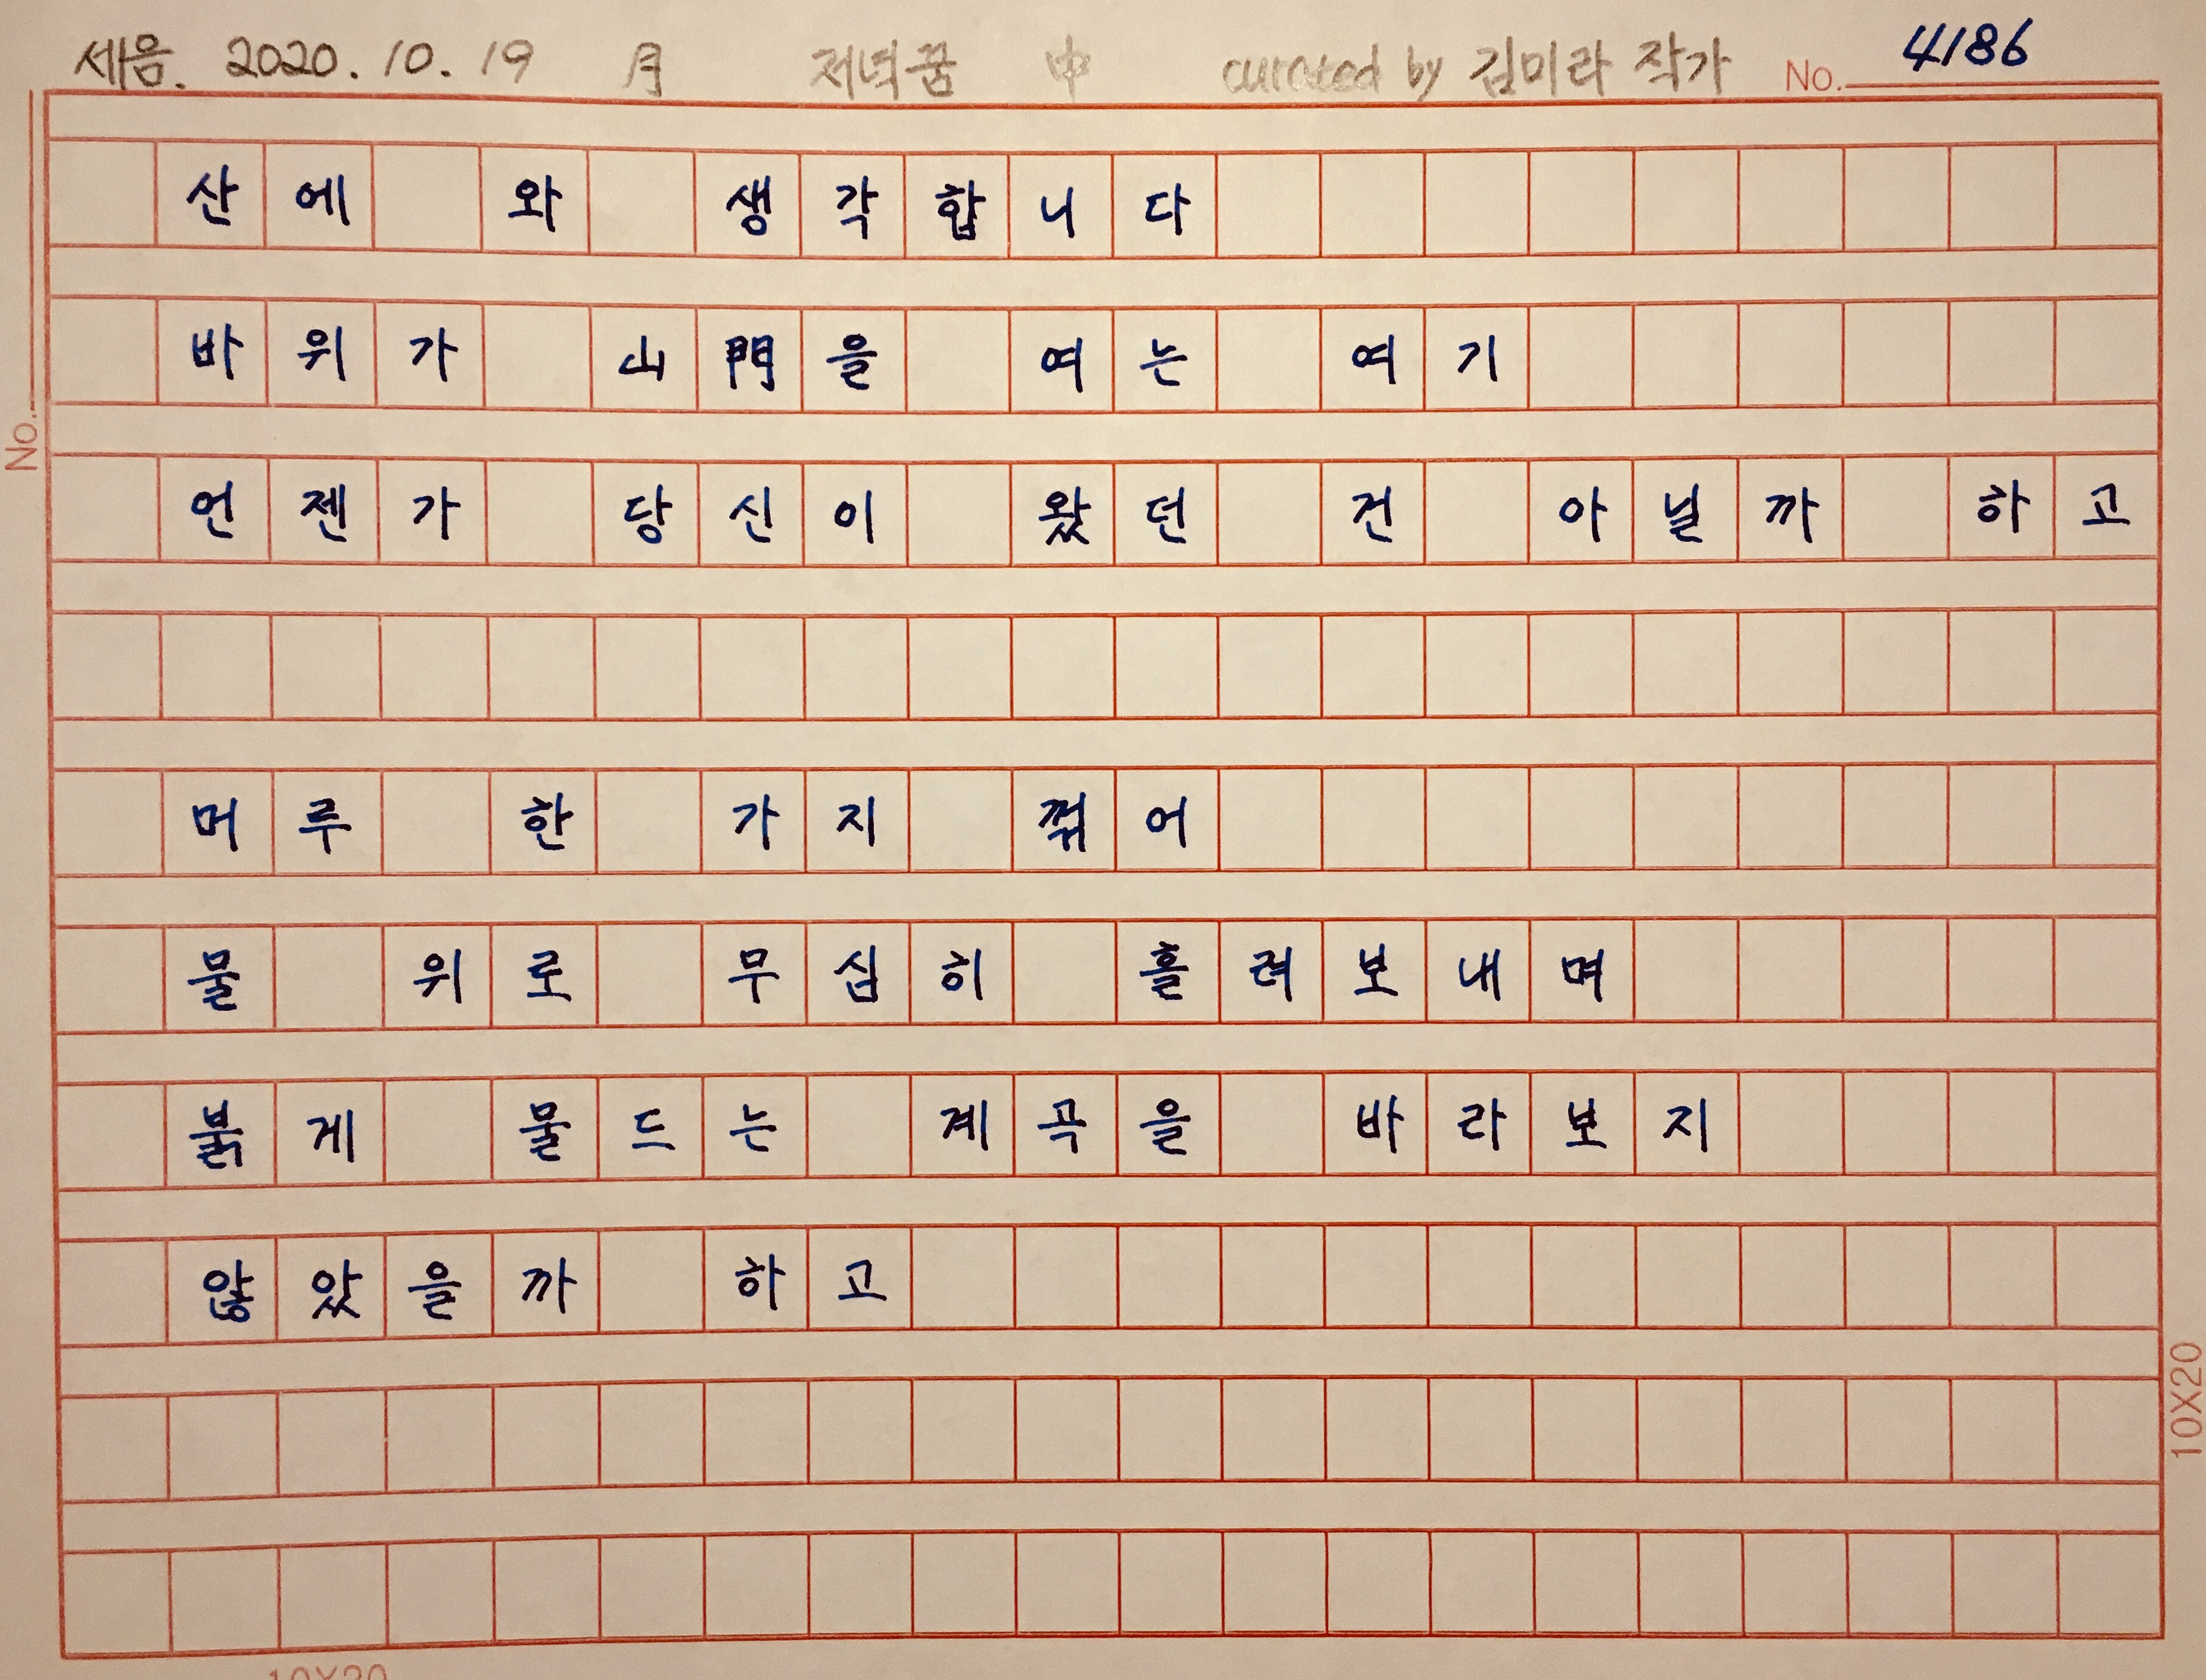 세음. 2020. 10. 19 月 저녁꿈 中 curated by 김미라 작가 No. 4186
산에 와 생각합니다
바위가 山門을 여는 여기
언젠가 당신이 왔던 건 아닐까 하고
머루 한 가지 꺾어
물 위로 무심히 흘려보내며
붉게 물드는 계곡을 바라보지
않았을까 하고
No.
10X20
10X20